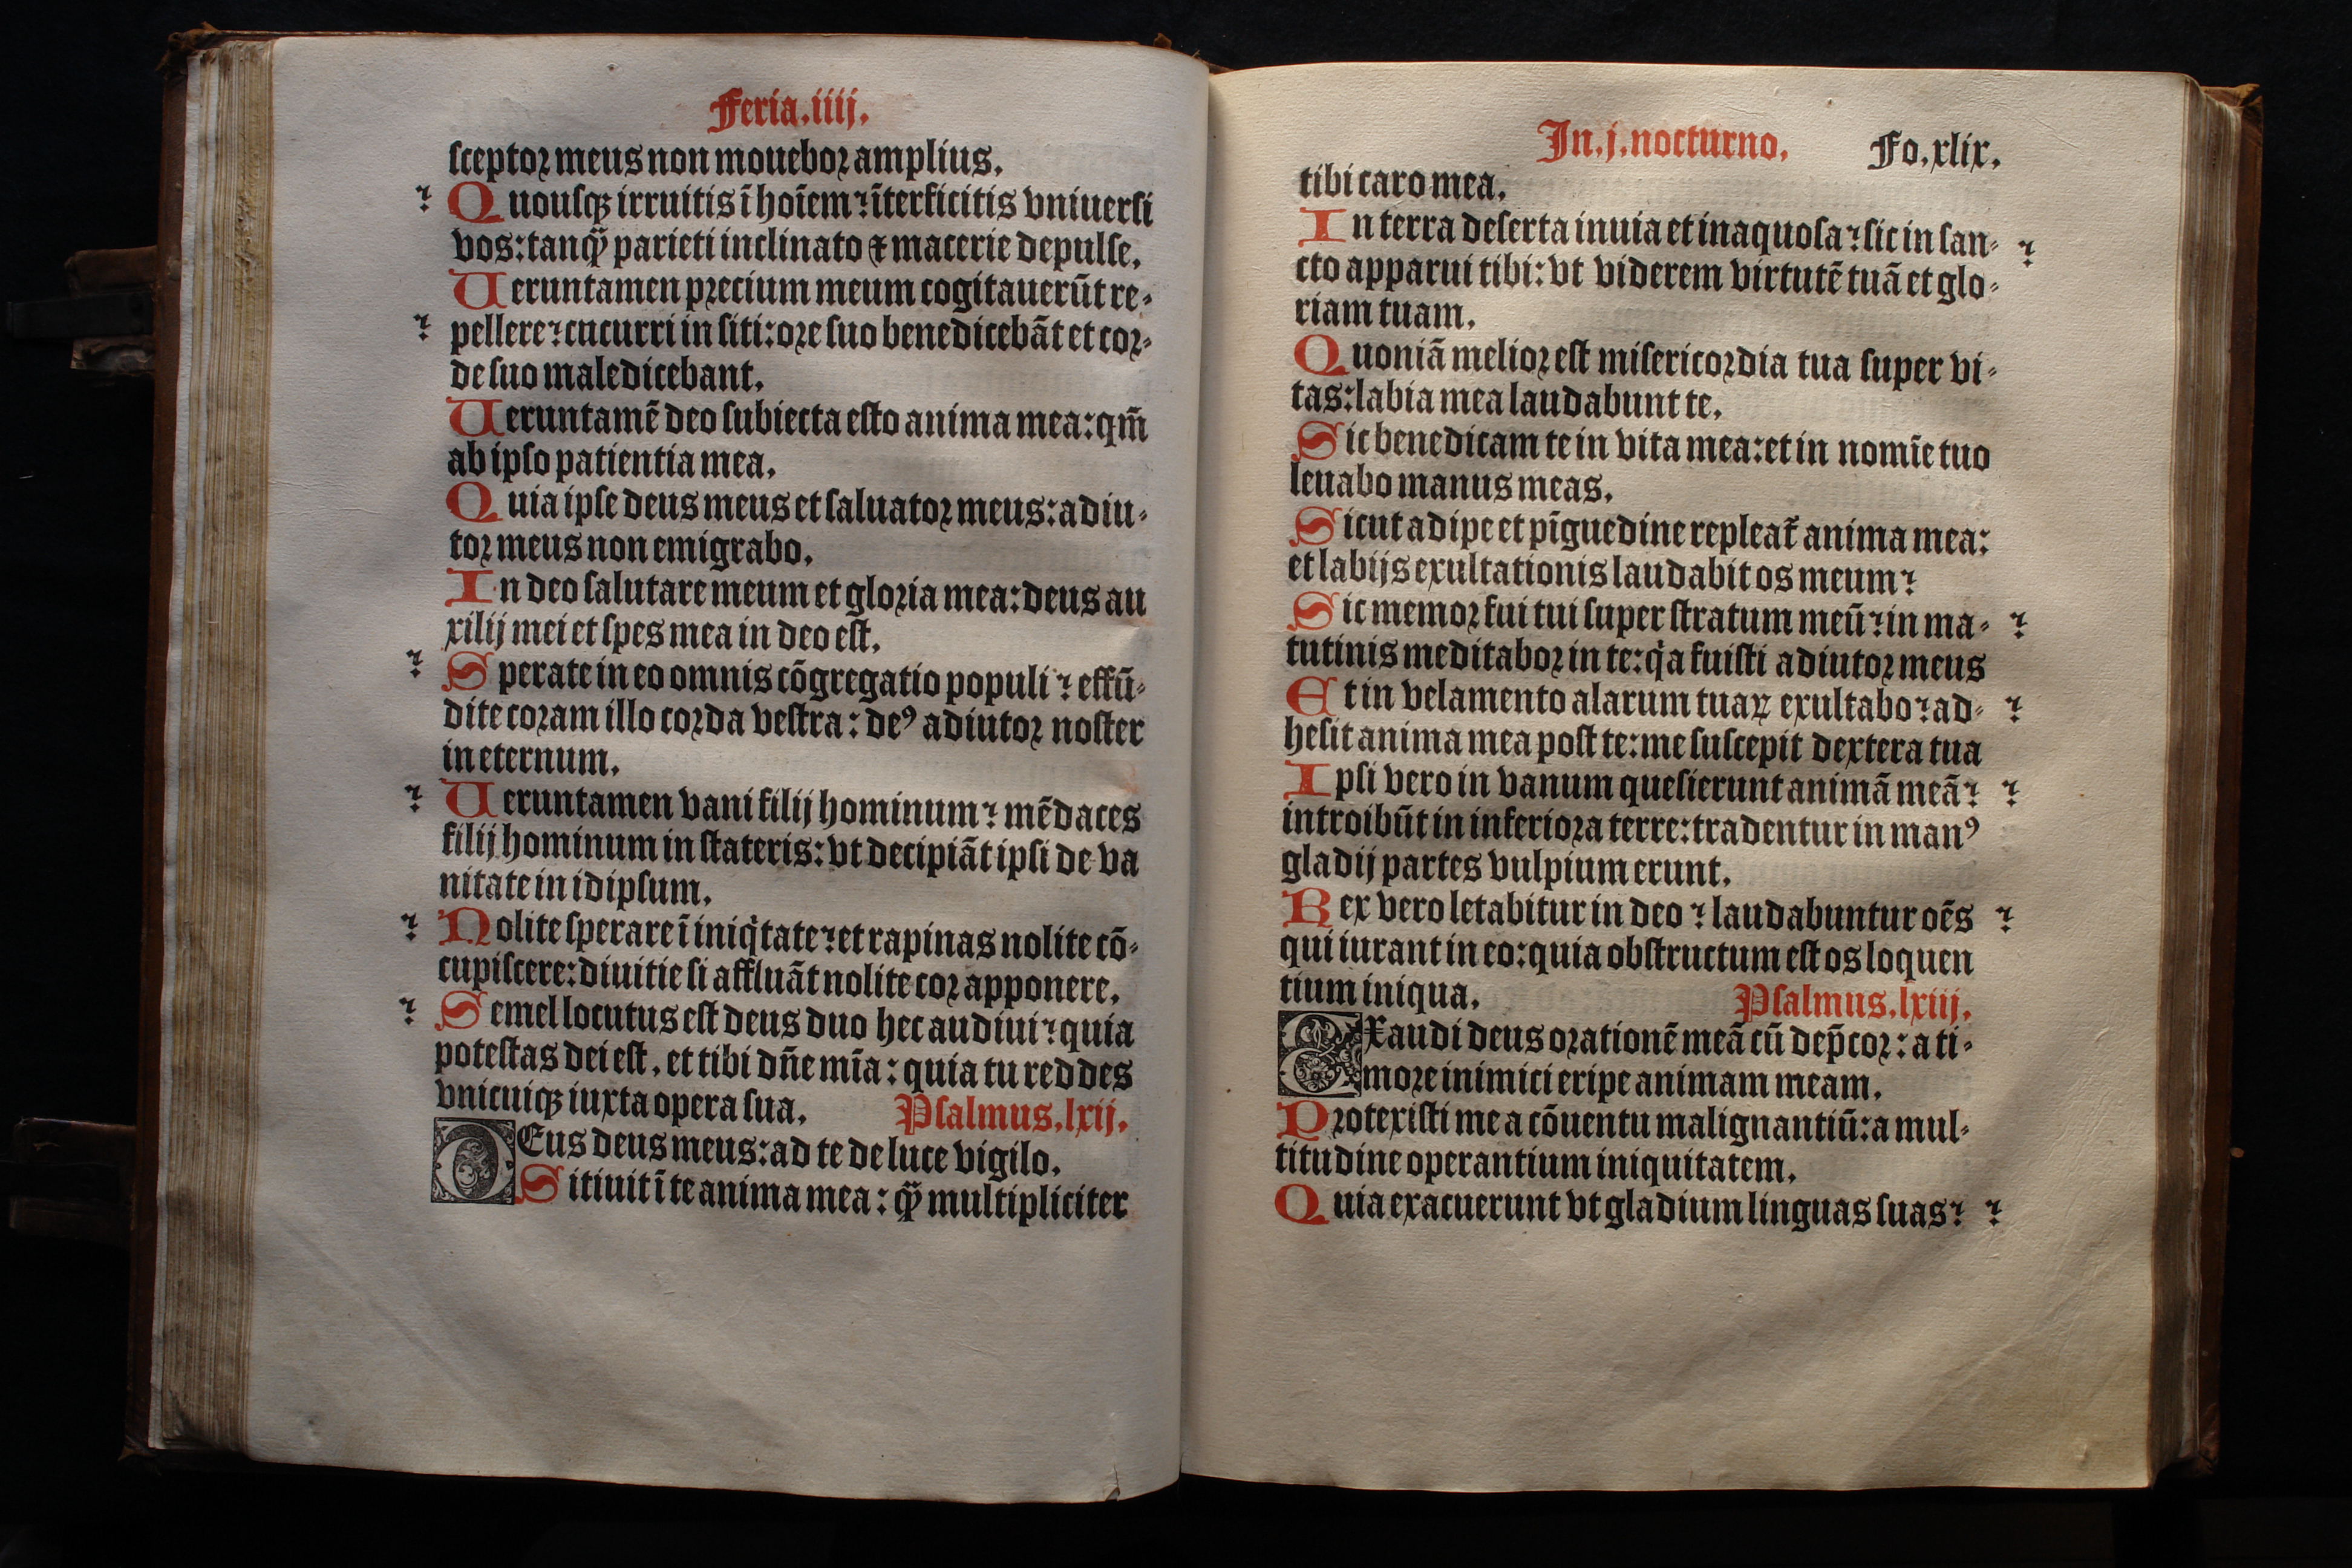 Feria.iiij.
sceptor meus non mouebor amplius.
Quousqꝫ irruitis ī hoīem : īterficitis vniuersi
vos: tanqꝫ̄ parieti inclinato ⁊ macerie depulse.
Ueruntamen precium meum cogitauerūt re-
pellere : cucurri in siti: ore suo benedicebāt et cor-
de suo maledicebant.
Ueruntamē deo subiecta esto anima mea: qm̄
ab ipso patientia mea.
Quia ipse deus meus et saluator meus: adiu-
tor meus non emigrabo.
In deo salutare meum et gloria mea: deus au
xilij mei et spes mea in deo est.
Sperate in eo omnis cōgregatio populi : effū-
dite coram illo corda vestra: deꝰ adiutor noster
in eternum.
Ueruntamen vani filij hominum : mēdaces
filij hominum in stateris: vt decipiāt ipsi de va
nitate in idipsum.
Nolite sperare ī iniqͥtate : et rapinas nolite cō-
cupiscere: diuitie si affluāt nolite cor apponere.
Semel locutus est deus duo hec audiui : quia
potestas dei est. et tibi dn̄e mīa: quia tu reddes
vnicuiqꝫ iuxta opera sua. Psalmus.lxij.
DEus deus meus: ad te de luce vigilo.
Sitiuit ī te anima mea: qꝫ̄ multipliciter
In.j.nocturno. Fo.xlix.
tibi caro mea.
In terra deserta inuia et inaquosa : sic in san-
cto apparui tibi: vt viderem virtutē tuā et glo-
riam tuam.
Quoniā melior est misericordia tua super vi-
tas: labia mea laudabunt te.
Sic benedicam te in vita mea: et in nomīe tuo
leuabo manus meas.
Sicut adipe et pīguedine repleat᷑ anima mea:
et labijs exultationis laudabit os meum :
Sic memor fui tui super stratum meū : in ma-
tutinis meditabor in te: qͥa fuisti adiutor meus
Et in velamento alarum tuaꝝ exultabo : ad-
hesit anima mea post te: me suscepit dextera tua
Ipsi vero in vanum quesierunt animā meā :
introibūt in inferiora terre: tradentur in manꝰ
gladij partes vulpium erunt.
Rex vero letabitur in deo : laudabuntur oēs
qui iurant in eo: quia obstructum est os loquen
tium iniqua. Psalmus.lxiij.
EXaudi deus orationē meā cū dep̄cor: a ti-
more inimici eripe animam meam.
Protexisti me a cōuentu malignantiū: a mul-
titudine operantium iniquitatem.
Quia exacuerunt vt gladium linguas suas :